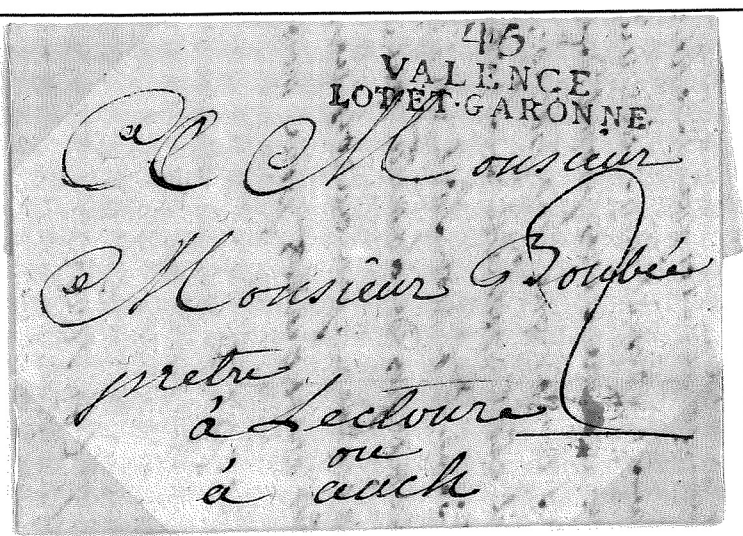 45
VALENCE
LOT-ET-GARONNE
A Monsieur
Monsieur Boubée
pretre
à Lectoure
ou
à auch
2